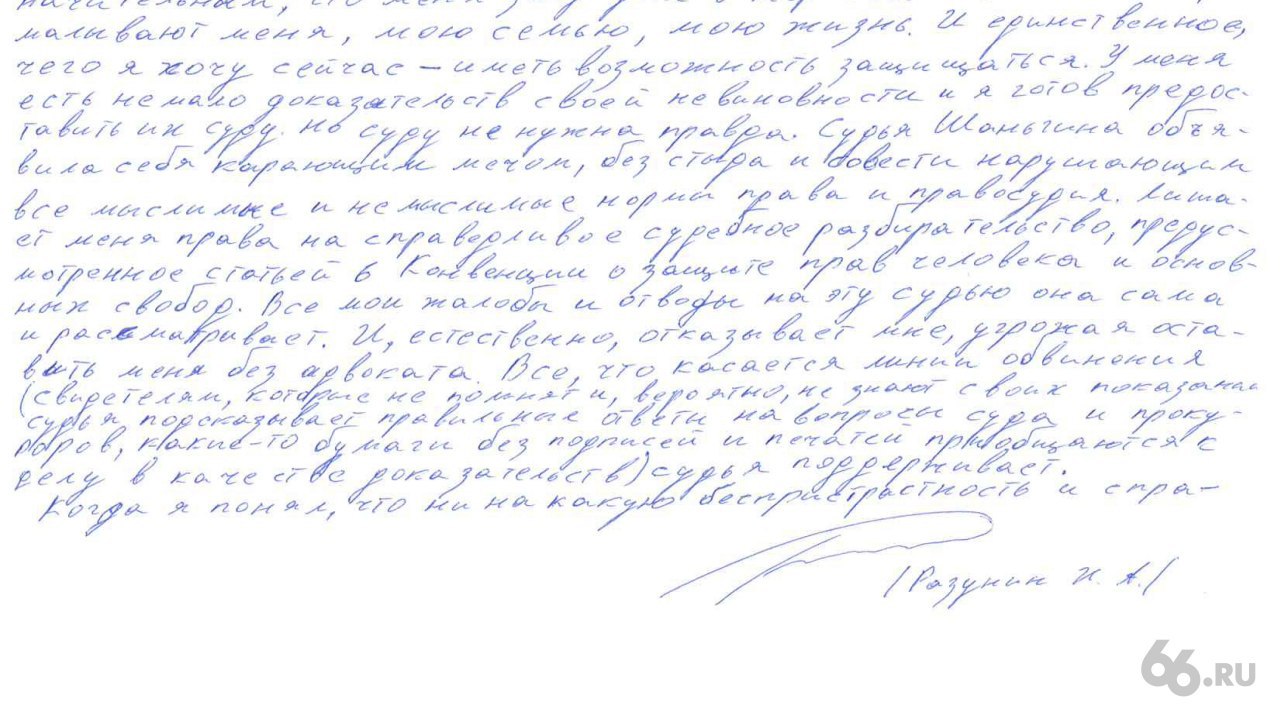 малывают меня, мою семью, мою жизнь. И единственное,
чего я хочу сейчас – иметь возможность защищаться. У меня
есть немало доказательств своей невиновности и я готов предос-
тавить их суду. Но суду не нужна правда. Судья Шаньгина объя-
вила себя карающим мечом, без стыда и совести нарушающим
все мыслимые и немыслимые нормы права и правосудия. Лиша-
ет меня права на справедливое судебное разбирательство, предус-
мотренное статьей 6 Конвенции о защите прав человека и основ-
ных свобод. Все мои жалобы и отводы на эту судью она сама
и рассматривает. И, естественно, отказывает мне, угрожая оста-
вить меня без адвоката. Все, что касается линии обвинения
(свидетелям, которые не помнят и, вероятно, не знают своих показаний
судья подсказывает правильные ответы на вопросы суда и проку-
роров, какие-то бумаги без подписей и печатей приобщаются к
делу в качестве доказательств) судья поддерживает.
Когда я понял, что ни на какую беспристрастность и спра-
/Разунин Н. А./
66.RU